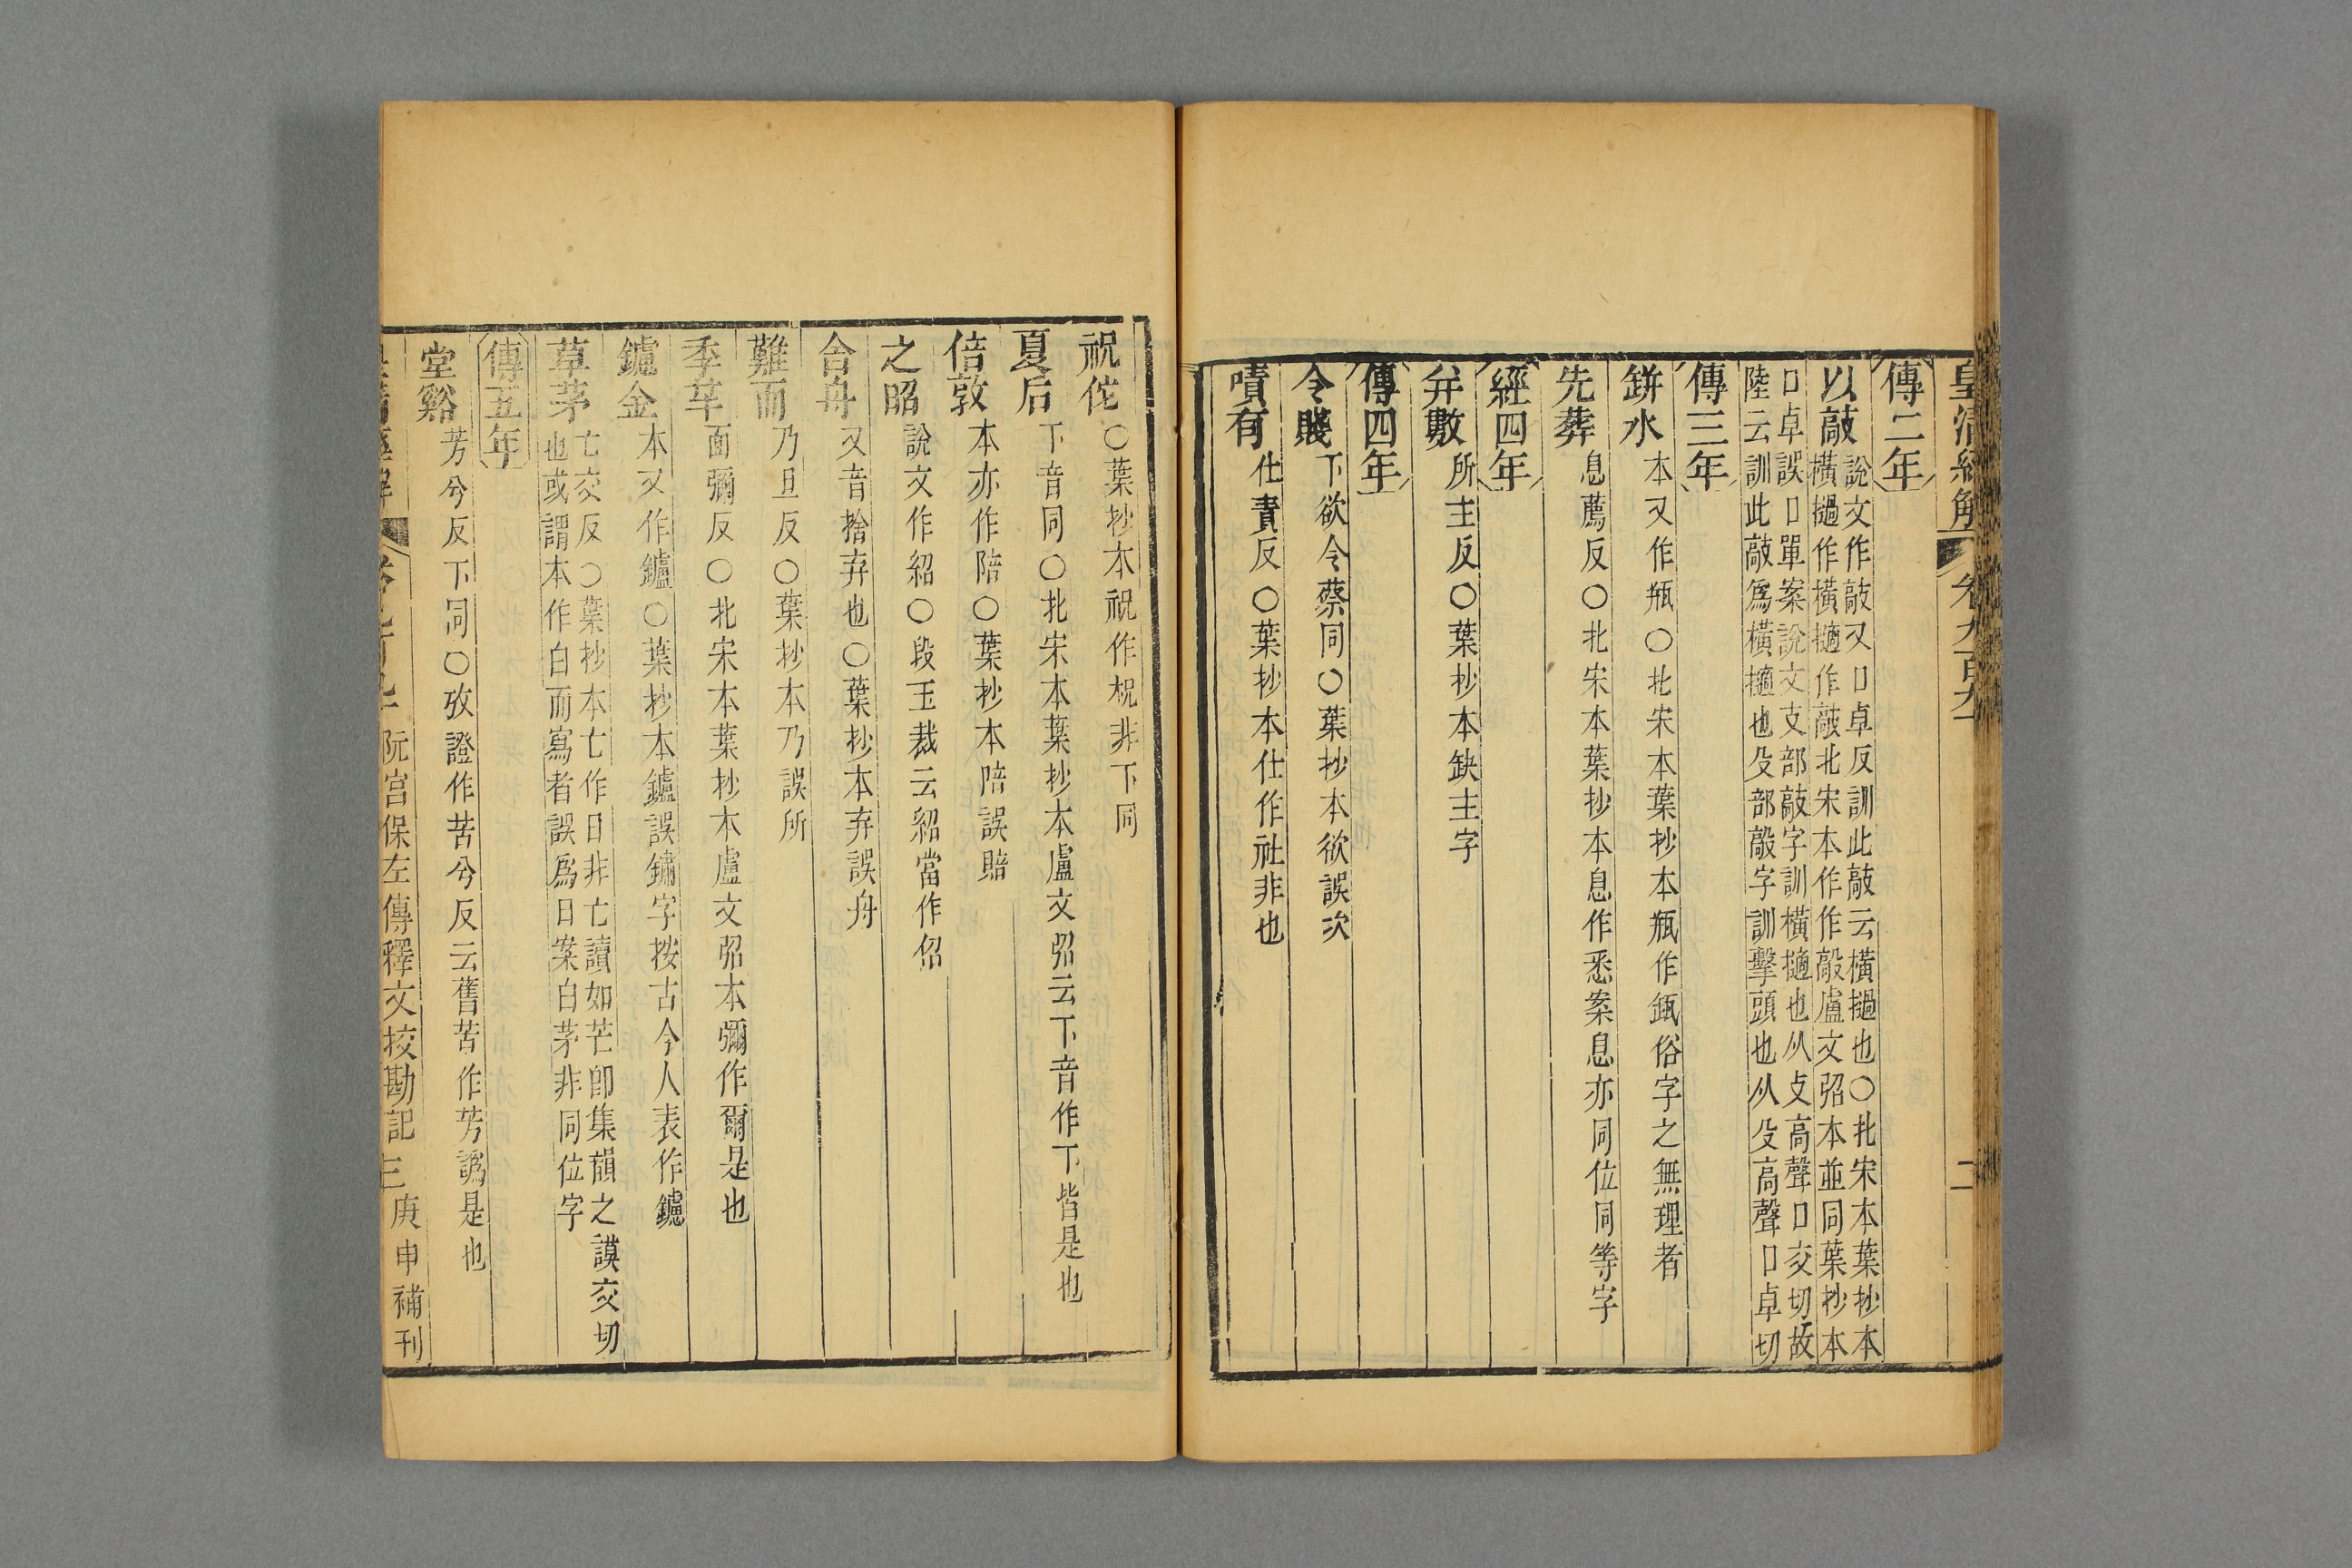 皇清經解 卷九百九 二
傳二年
以敲 說文作敲又口卓反訓此敲云橫撾也○北宋本葉抄本
橫撾作橫擿作敲北宋本作作毃盧文弨本並同葉抄本
口卓誤口單案說文攴部敲字訓橫擿也从攴高聲口交切故
陸云訓此敲爲橫擿也殳部毃字訓擊頭也从殳高聲口卓切
傳三年
缾水 本又作瓶○北宋本葉抄本瓶作缻俗字之無理者
先葬 息薦反○北宋本葉抄本息作悉案息亦同位同等字
經四年
弁數 所主反○葉抄本缺主字
傳四年
令賤 下欲令蔡同○葉抄本欲誤次
嘖有 仕責反○葉抄本仕作社非也
祝佗 ○葉抄本祝作柷非下同
夏后 下音同○北宋本葉抄本盧文弨云下音作下皆是也
倍敦 本亦作陪○葉抄本陪誤賠
之昭 說文作紹○段玉裁云紹當作佋
舍舟 又音捨弃也○葉抄本弃誤舟
難而 乃旦反○葉抄本乃誤所
季芈 面彌反○北宋本葉抄本盧文弨本彌作爾是也
鑪金 本又作鑢○葉抄本鑢誤鏽字按古今人表作鑢
草茅 亡交反○葉抄本亡作日非亡讀如芒卽集韻之謨交切
也或謂本作白而寫者誤爲日案白茅非同位字
傳五年
堂谿 芳兮反下同○攷證作苦兮反云舊苦作芳譌是也
阮宮保左傳釋文挍勘記 三 庚申補刊